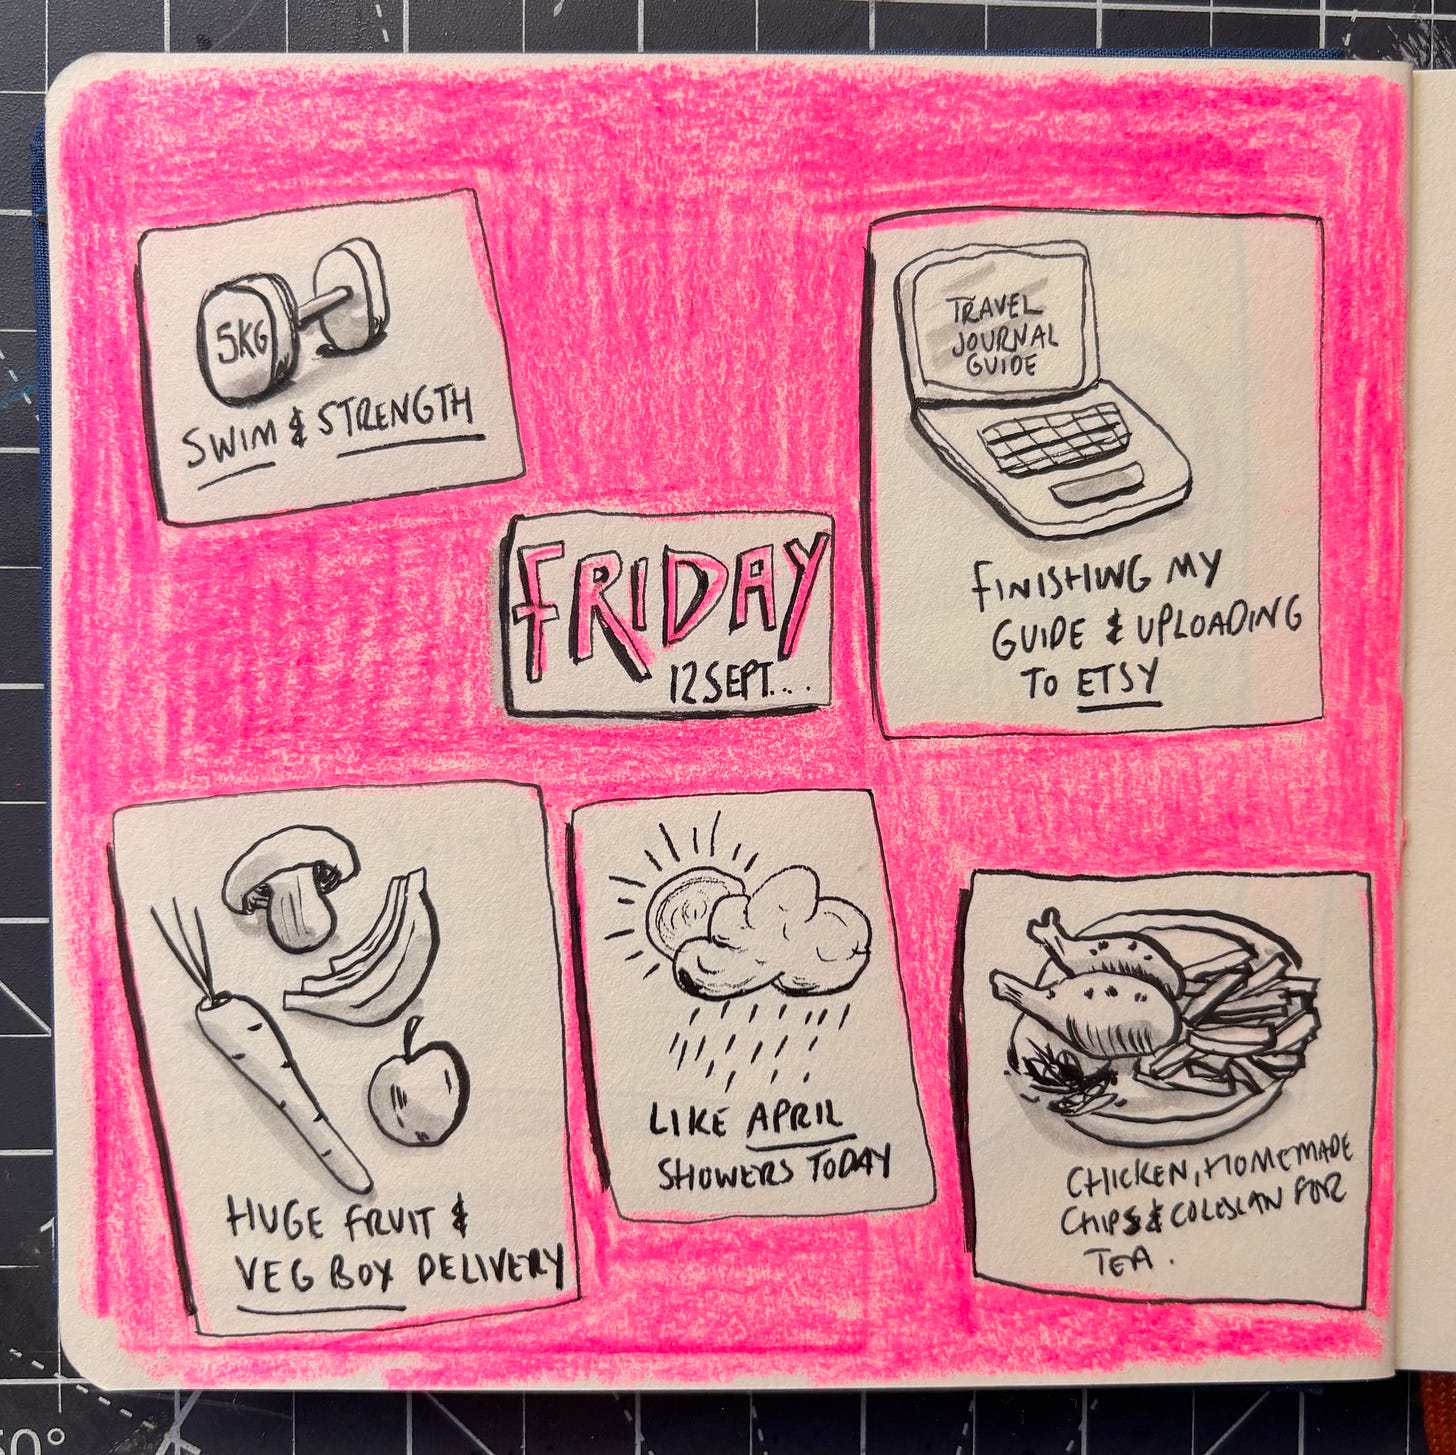 5KG
SWIM & STRENGTH
TRAVEL
JOURNAL
GUIDE
FINISHING MY
GUIDE & UPLOADING
TO ETSY
FRIDAY
12 SEPT....
HUGE FRUIT &
VEG BOX DELIVERY
LIKE APRIL
SHOWERS TODAY
CHICKEN, HOMEMADE
CHIPS & COLESLAW FOR
TEA.
0°